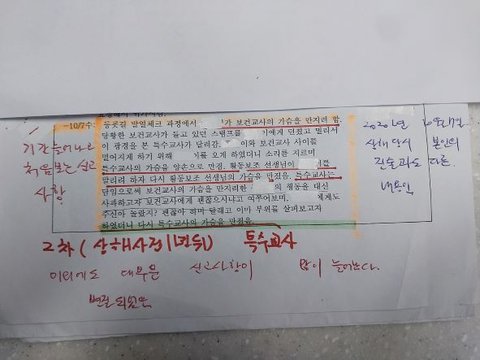 -10/7수
등굣길 발열체크 과정에서 가 보건교사의 가슴을 만지려 함
당황한 보건교사가 들고 있던 스탬프를 에게 던졌고 멀리서
이 광경을 본 특수교사가 달려감. 이와 보건교사 사이를
떨어지게 하기 위해 이를 오게 하였더니 소리를 지르며
특수교사의 가슴을 양손으로 만짐. 활동보조 선생님이 를
말리려 하자 다시 활동보조 선생님의 가슴을 만졌음. 특수교사는
담임으로써 보건교사의 가슴을 만지려한 의 행동을 대신
사과하고자 보건교사에게 괜찮으시냐고 여쭈어보며, 에게도
주진아 놀랐지? 괜찮아 하며 달래고 이마 부위를 살펴보고자
하였더니 다시 특수교사의 가슴을 만졌음
기간 늘어나고
처음 보는 신고
사항
2020년 10월 7일
상해 당시 본인의
진술과도 다른
내용임
2차 (상해사건 1년 뒤) 특수교사
이외에도 대부분 신고사항이 많이 늘어났다.
변질되었음